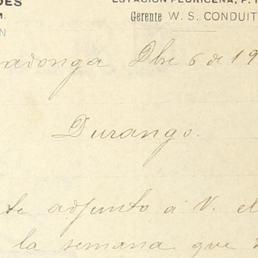 DES
ESTACIÓN PEDRICEÑA, F. I
M.
Gerente W. S. CONDUIT
N
adonga Dbre 6 de 19
Durango.
te adjunto á V. el
la semana que